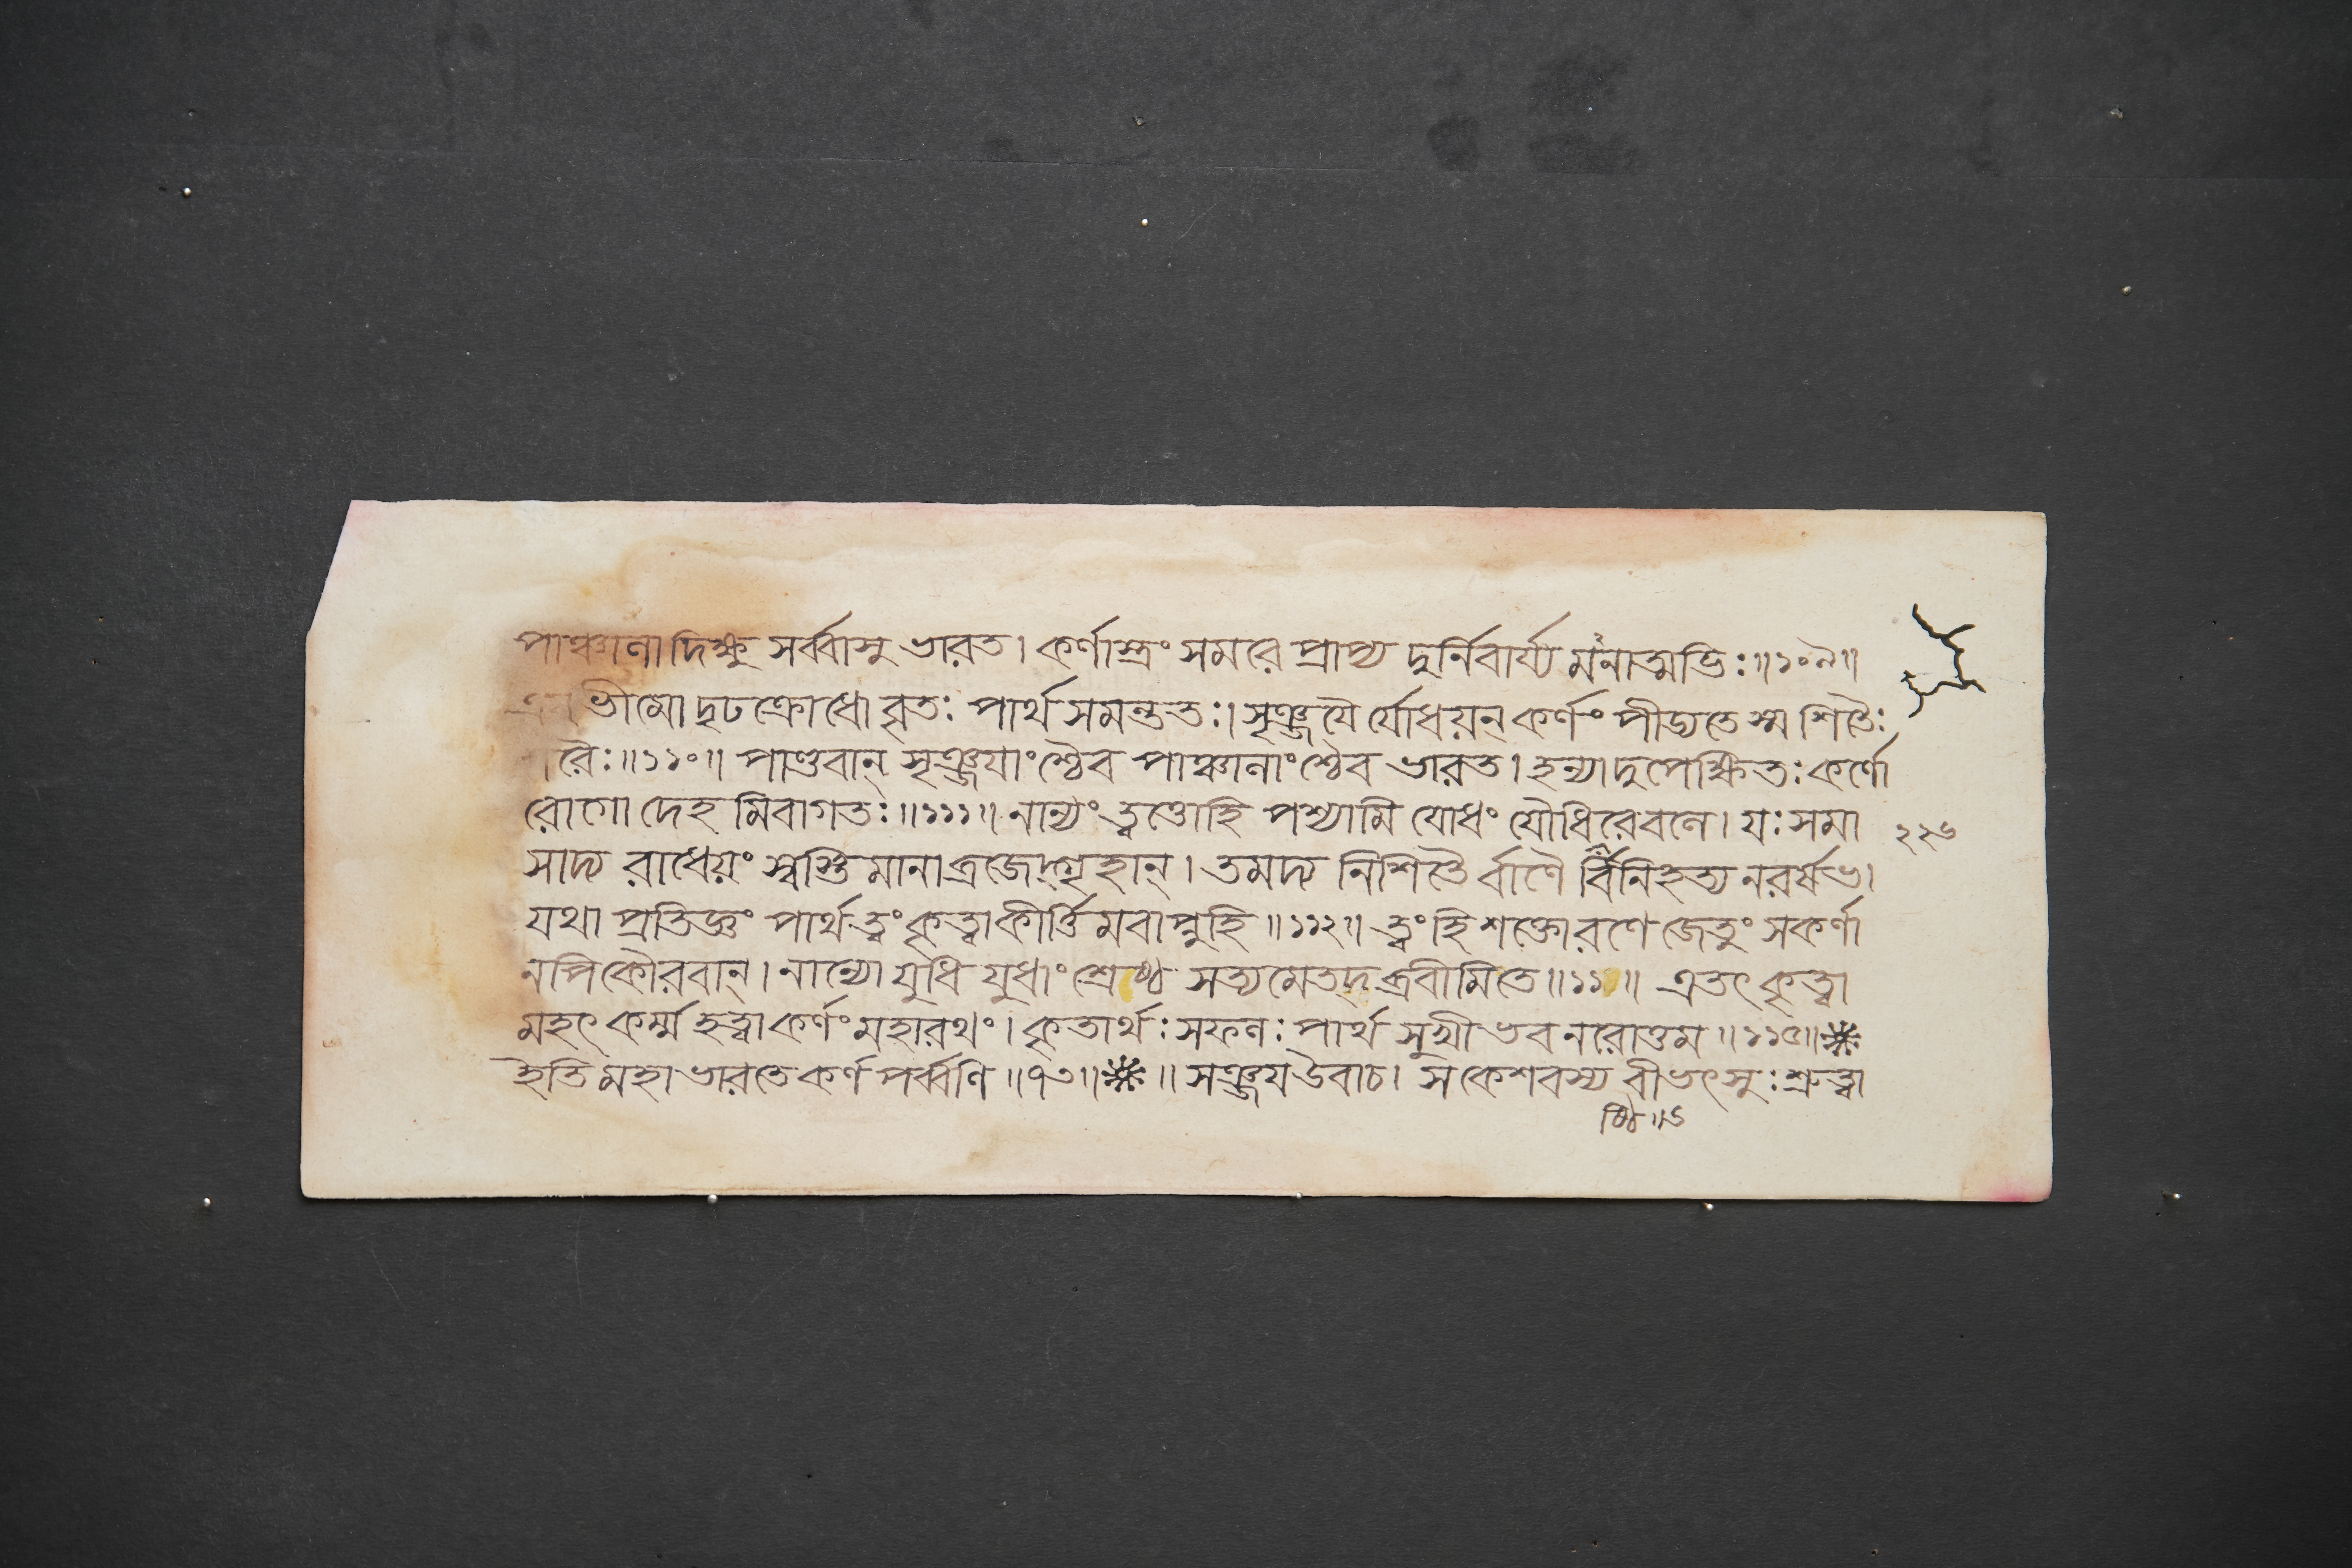 পাঞ্চালা দিক্ষু সর্ব্বাসু ভারত। কর্ণাস্ত্রং সমরে প্রাপ্য দুর্নিবার্য্য মনাত্মভিঃ॥১০৯॥
ভীমো দৃঢক্রোধো বৃতঃ পার্থ সমন্ততঃ। সৃঞ্জযৈ র্যোধয়ন্ কর্ণং পীড্যতে স্ম শিতৈঃ
রৈঃ॥১১০॥ পাণ্ডবান্ সৃঞ্জযাংশ্চৈব পাঞ্চালাংশ্চৈব ভারত। হন্যাদুপেক্ষিতঃ কর্ণো
রোগো দেহ মিবাগতঃ॥১১১॥ নান্যং ত্বত্তোহি পশ্যামি যোধং যৌধিরেবলে। যঃ সমা
সাদ্য রাধেয়ং স্বস্তি মানাব্রজেদ্গৃহান্। তমদ্য নিশিতৈ র্বাণৈ র্বিনিহত্য নরর্ষভ।
যথা প্রতিজ্ঞং পার্থ ত্বং কৃত্বা কীর্ত্তি মবাপ্নুহি॥১১২॥ ত্বং হি শক্তো রণে জেতুং সকর্ণা
নপি কৌরবান্। নান্যো যুধি যুধাং শ্রেষ্ঠ সত্যমেতদ্ ব্রবীমি তে॥১১ ॥ এতৎ কৃত্বা
মহৎ কর্ম্ম হত্বা কর্ণং মহারথং। কৃতার্থঃ সফলঃ পার্থ সুখী ভব নরোত্তম॥১১৫॥
ইতি মহাভারতে কর্ণপর্ব্বণি॥৭৩॥ ॥ সঞ্জয উবাচ। স কেশবস্য বীভৎসুঃ শ্রুত্বা
২২৬